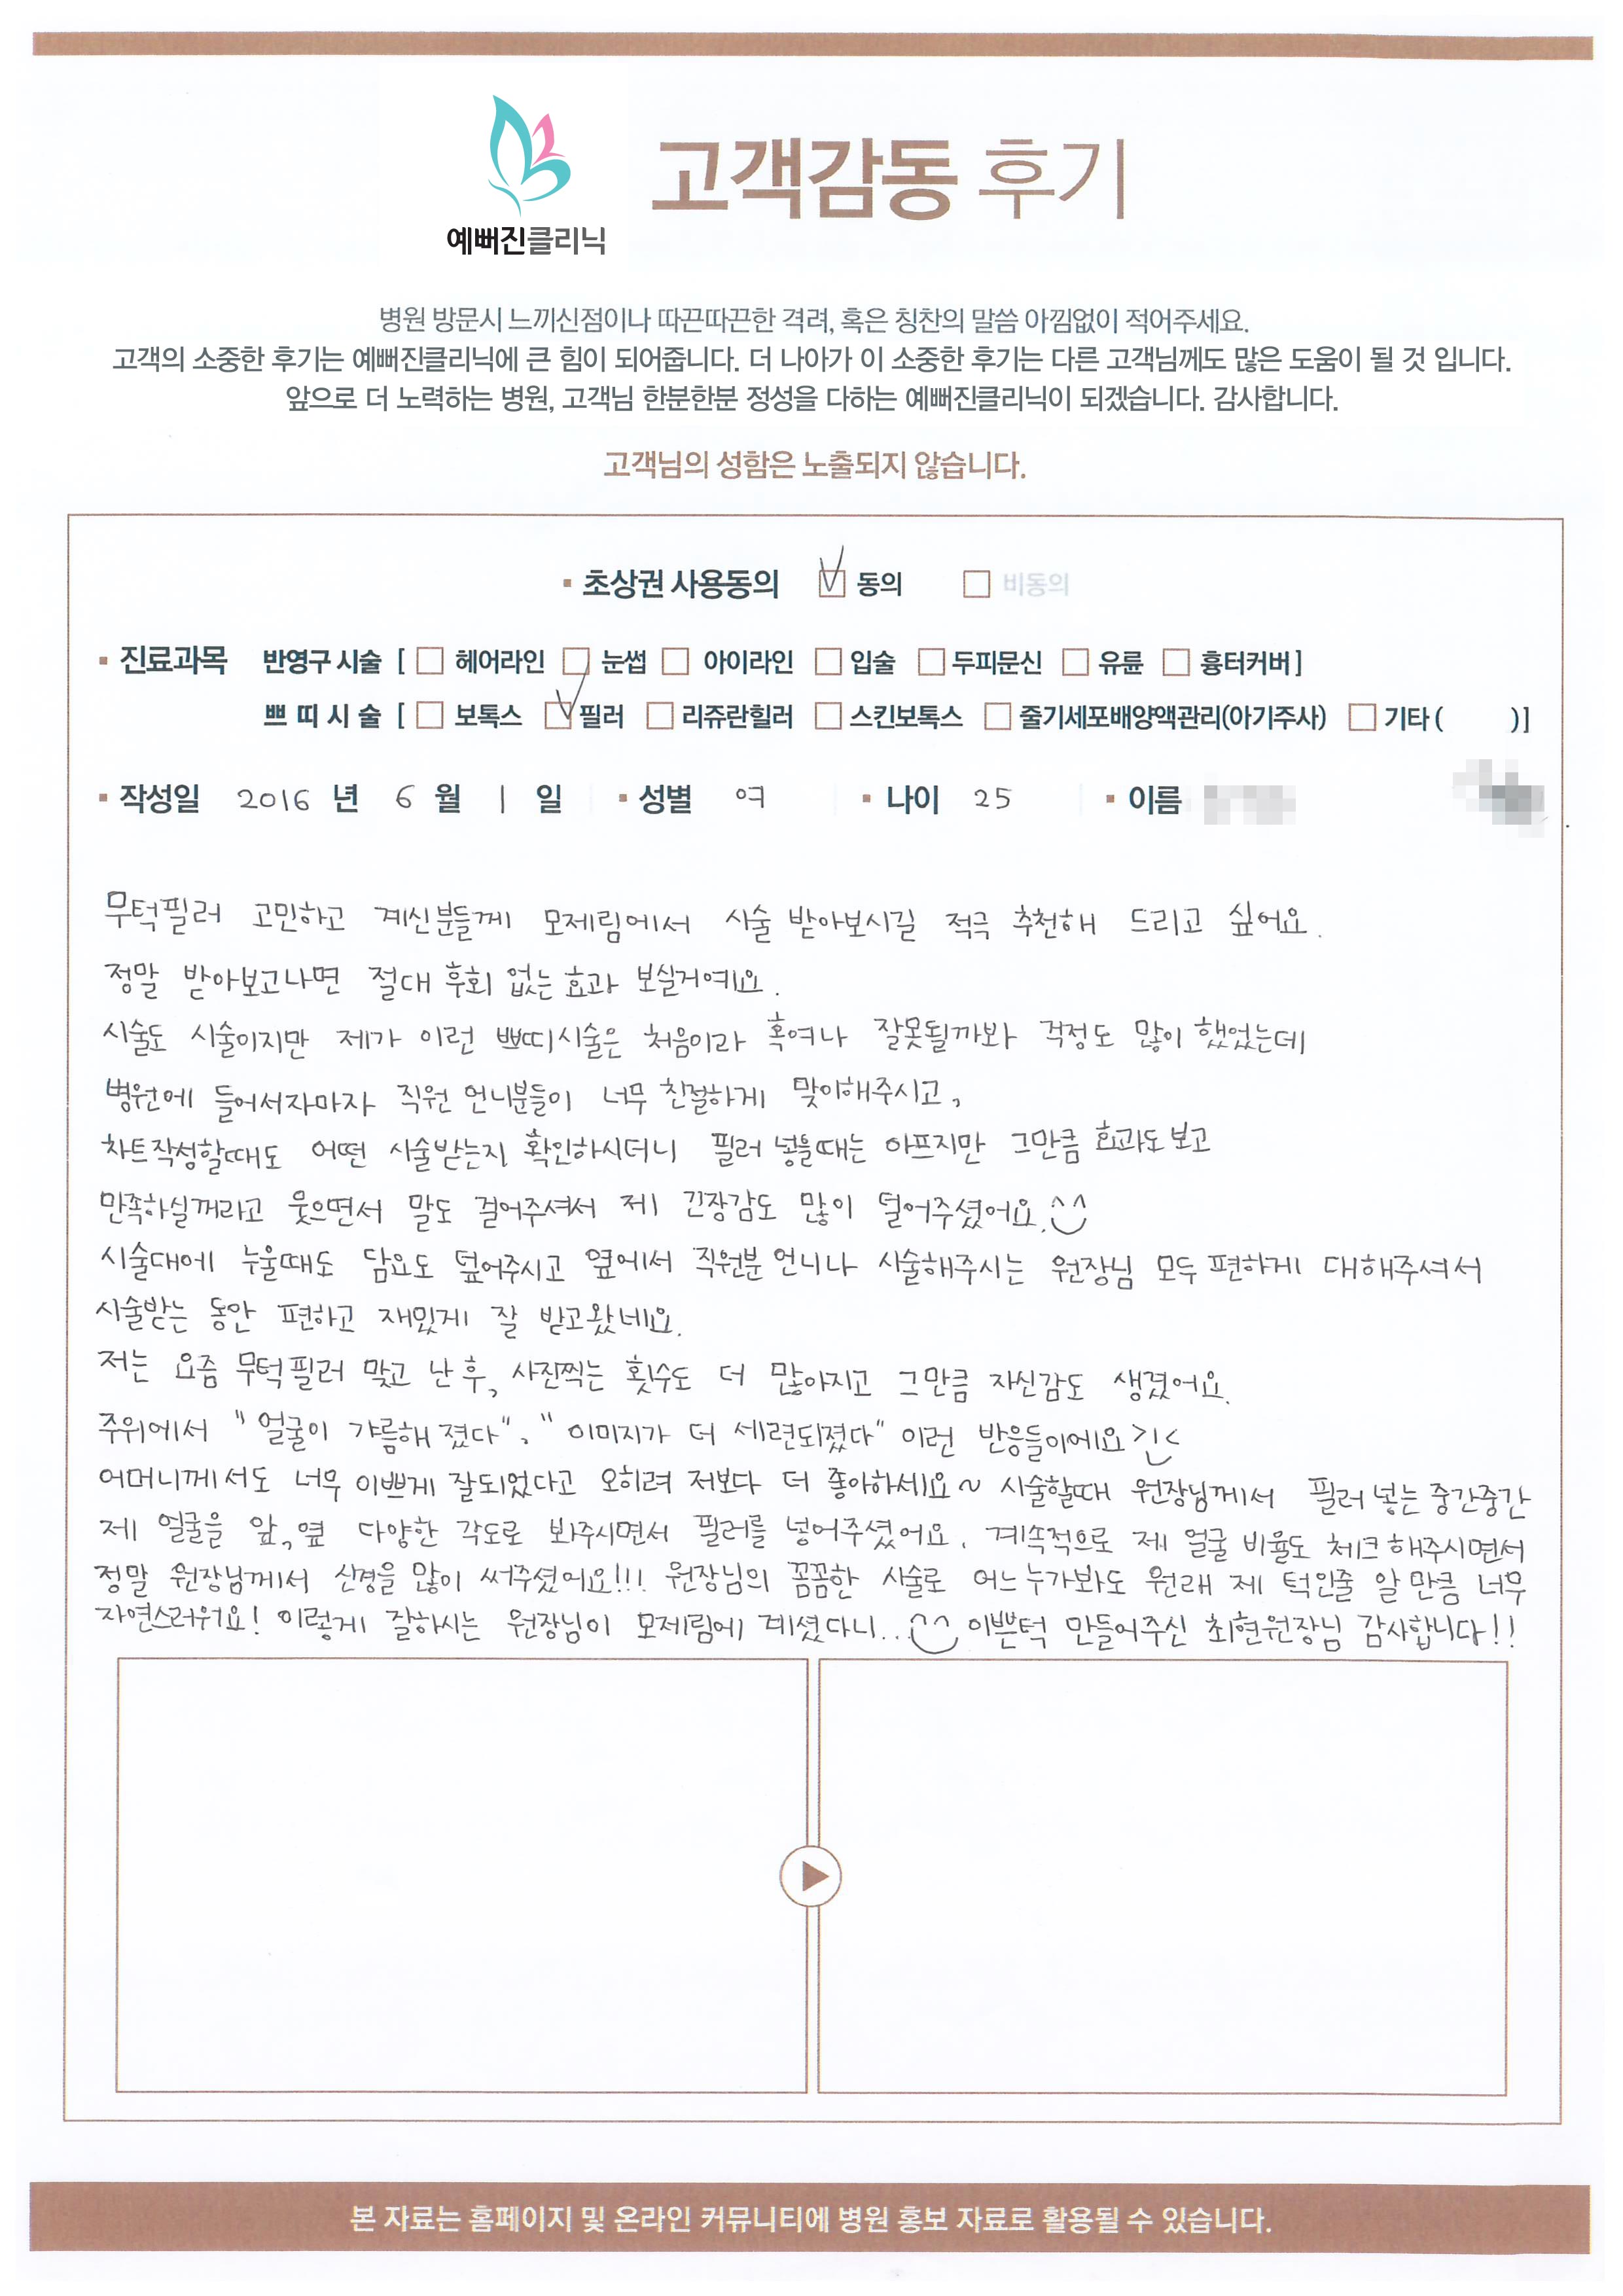 예뻐진클리닉
고객감동 후기
병원 방문시 느끼신점이나 따끈따끈한 격려, 혹은 칭찬의 말씀 아낌없이 적어주세요.
고객의 소중한 후기는 예뻐진클리닉에 큰 힘이 되어줍니다. 더 나아가 이 소중한 후기는 다른 고객님께도 많은 도움이 될 것 입니다.
앞으로 더 노력하는 병원, 고객님 한분한분 정성을 다하는 예뻐진클리닉이 되겠습니다. 감사합니다.
고객님의 성함은 노출되지 않습니다.
초상권 사용동의 동의 비동의
진료과목 반영구 시술 [ 헤어라인 눈썹 아이라인 입술 두피문신 유륜 흉터커버 ]
쁘띠시술 [ 보톡스 필러 리쥬란힐러 스킨보톡스 줄기세포배양액관리(아기주사) 기타 ( )]
작성일 2016 년 6 월 1 일 성별 여 나이 25 이름
무턱필러 고민하고 계신분들께 모제림에서 시술 받아보시길 적극 추천해 드리고 싶어요.
정말 받아보고나면 절대 후회 없는 효과 보실거예요.
시술도 시술이지만 제가 이런 쁘띠시술은 처음이라 혹여나 잘못될까봐 걱정도 많이 했었는데
병원에 들어서자마자 직원 언니분들이 너무 친절하게 맞이해주시고,
차트작성할때도 어떤 시술받는지 확인하시더니 필러 넣을때는 아프지만 그만큼 효과도 보고
만족하실꺼라고 웃으면서 말도 걸어주셔서 제 긴장감도 많이 덜어주셨어요.^^
시술대에 누울때도 담요도 덮어주시고 옆에서 직원분 언니나 시술해주시는 원장님 모두 편하게 대해주셔서
시술받는 동안 편하고 재밌게 잘 받고왔네요.
저는 요즘 무턱필러 맞고 난 후, 사진찍는 횟수도 더 많아지고 그만큼 자신감도 생겼어요.
주위에서 "얼굴이 갸름해 졌다", "이미지가 더 세련되졌다" 이런 반응들이에요 >ㅣ<
어머니께서도 너무 이쁘게 잘되었다고 오히려 저보다 더 좋아하세요~ 시술할때 원장님께서 필러 넣는 중간중간
제 얼굴을 앞, 옆 다양한 각도로 봐주시면서 필러를 넣어주셨어요. 계속적으로 제 얼굴 비율도 체크해주시면서
정말 원장님께서 신경을 많이 써주셨어요!!! 원장님의 꼼꼼한 시술로 어느누가봐도 원래 제 턱인줄 알 만큼 너무
자연스러워요! 이렇게 잘하시는 원장님이 모제림에 계셨다니...^^ 이쁜턱 만들어주신 최현원장님 감사합니다!!
본 자료는 홈페이지 및 온라인 커뮤니티에 병원 홍보 자료로 활용될 수 있습니다.